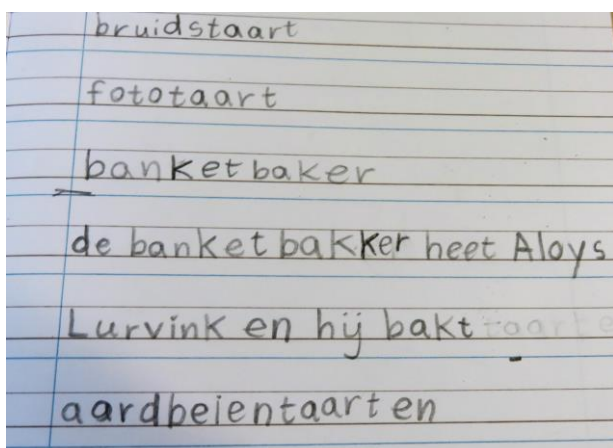 bruidstaart
fototaart
banketbaker
de banketbakker heet Aloys
Lurvink en hij bakt taarte
aardbeientaarten